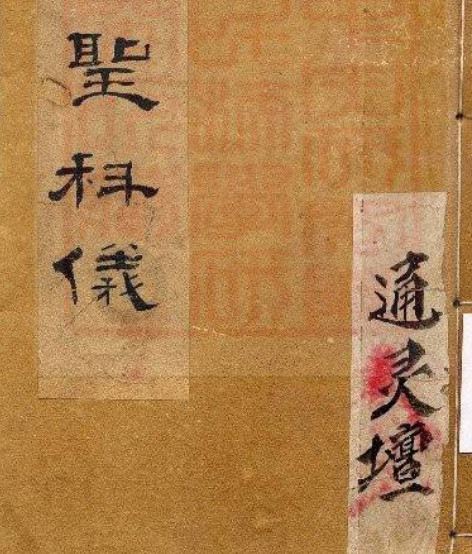 聖科儀
通灵壇